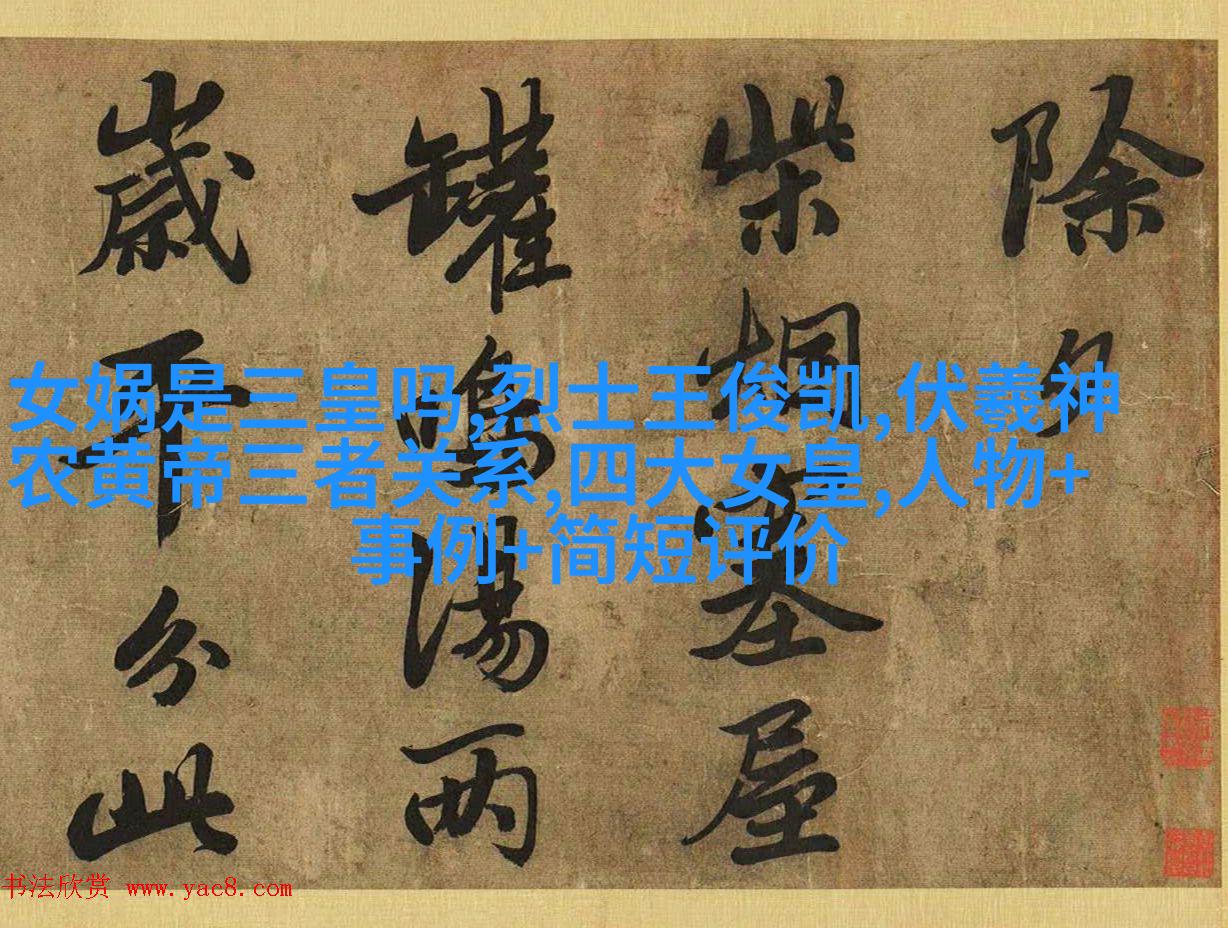 除夕
柴屋
罐鳴湯兩
歲平分此
女娲是三皇吗,烈士王俊凯,伏羲神
农黄帝三者关系,四大女皇,人物+
事例+简短评价
书法欣赏 www.yac8.com